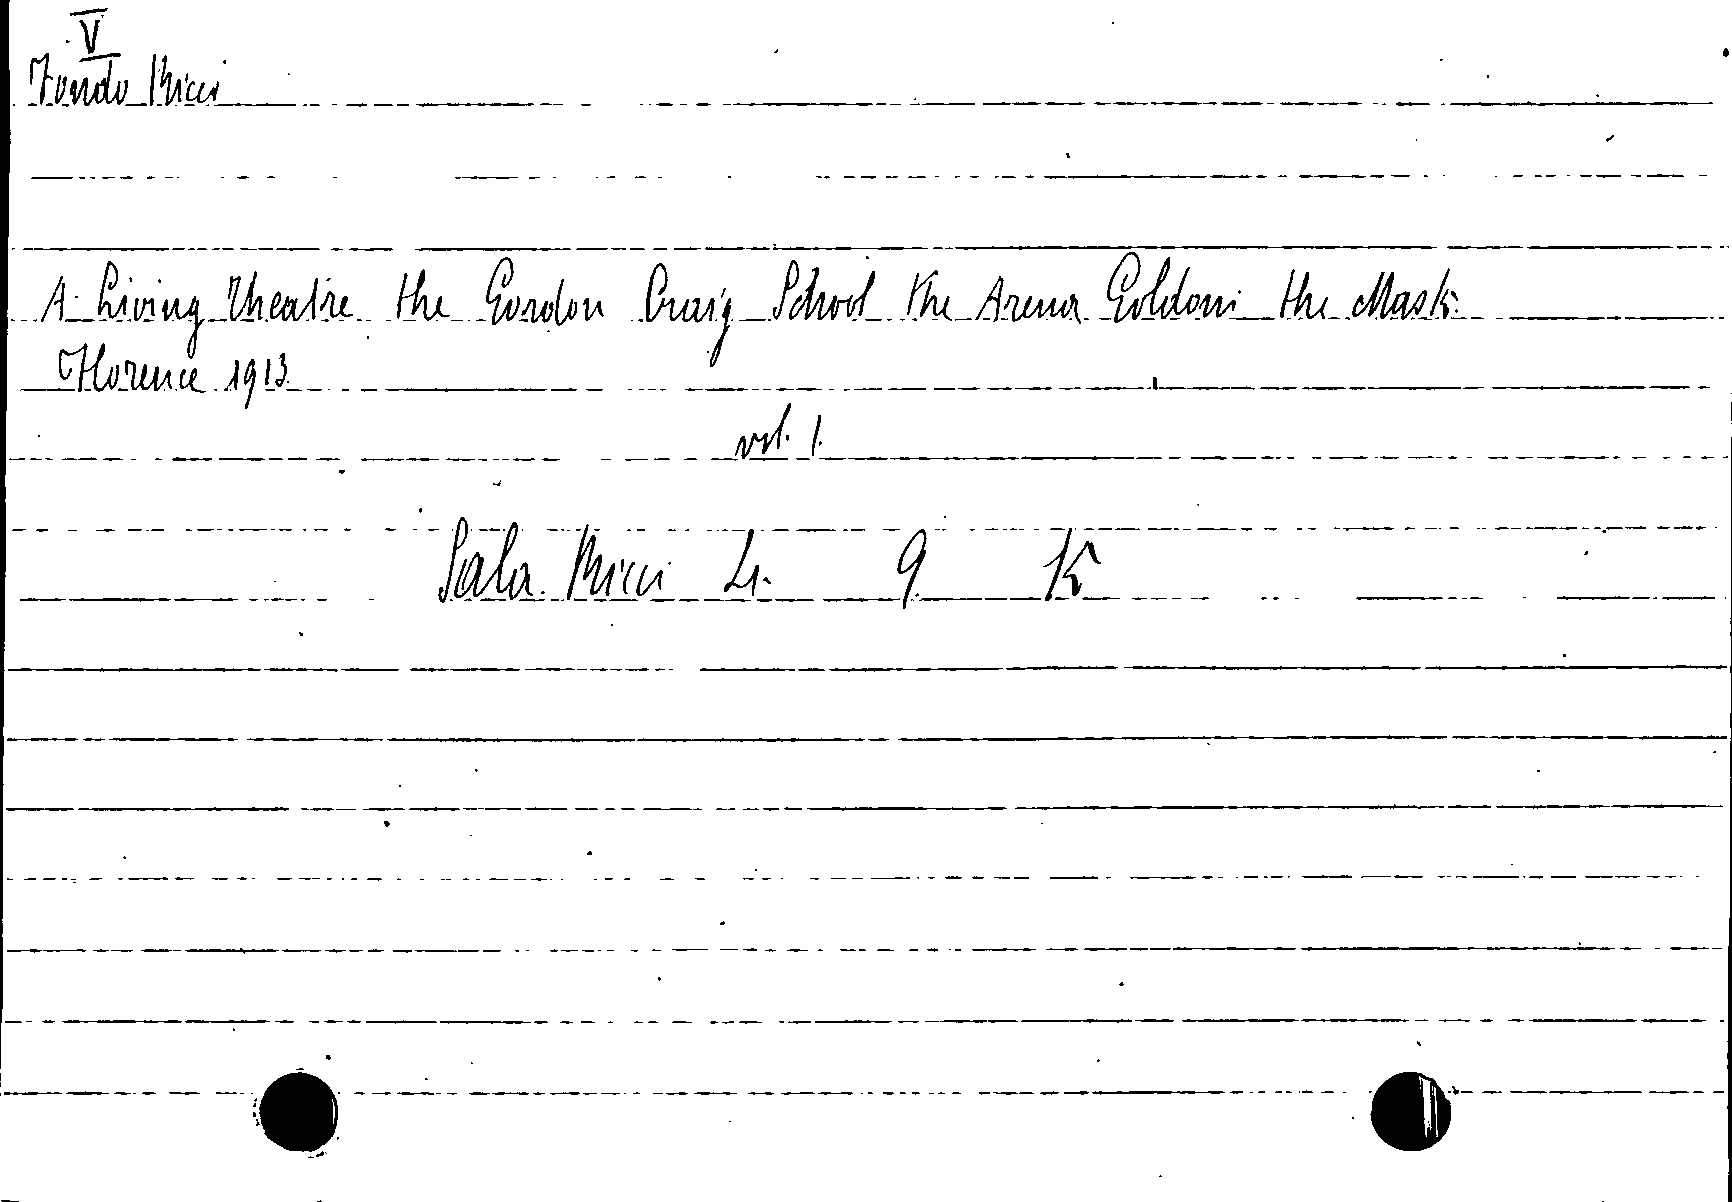 V
Fondo Ricci
A Living Theatre the Gordon Craig School the Arena Goldoni the Mask.
Florence 1913
vol. 1.
Sala Ricci L. 9 K